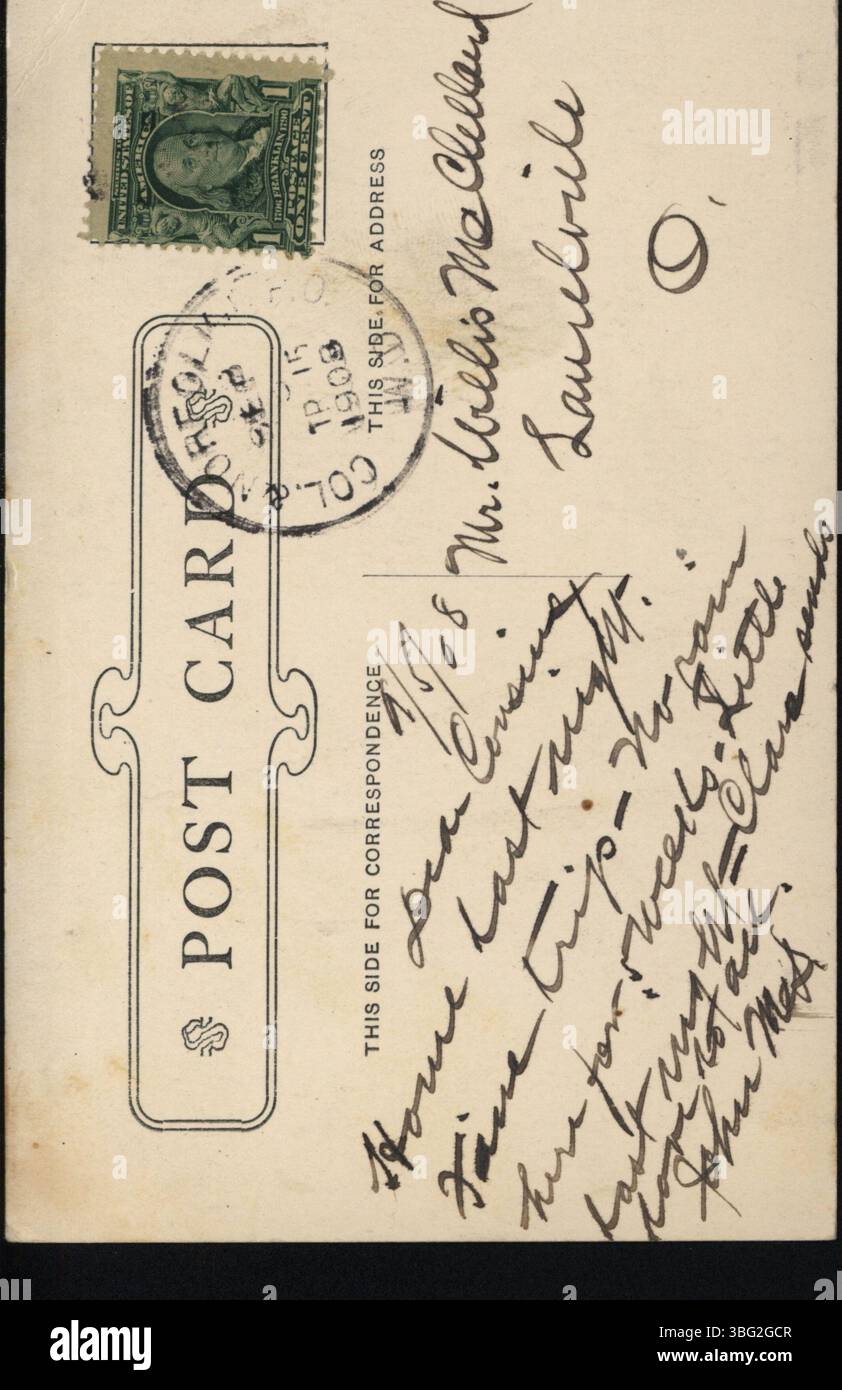 POST CARD
THIS SIDE FOR CORRESPONDENCE
THIS SIDE FOR ADDRESS
UNITED STATES OF AMERICA
1706 FRANKLIN 1790
POSTAGE
ONE CENT
1 1
COL. &
SEP 15
1908
9/5/08
Dear Cousins
Home last night.
Fine trip - No rain
here for weeks - Little
last night - Clara sends
love to all.
John McC
Mr. Willis McClelland
Laurelville
O.
alamy
Image ID: 3BG2GCR
www.alamy.com